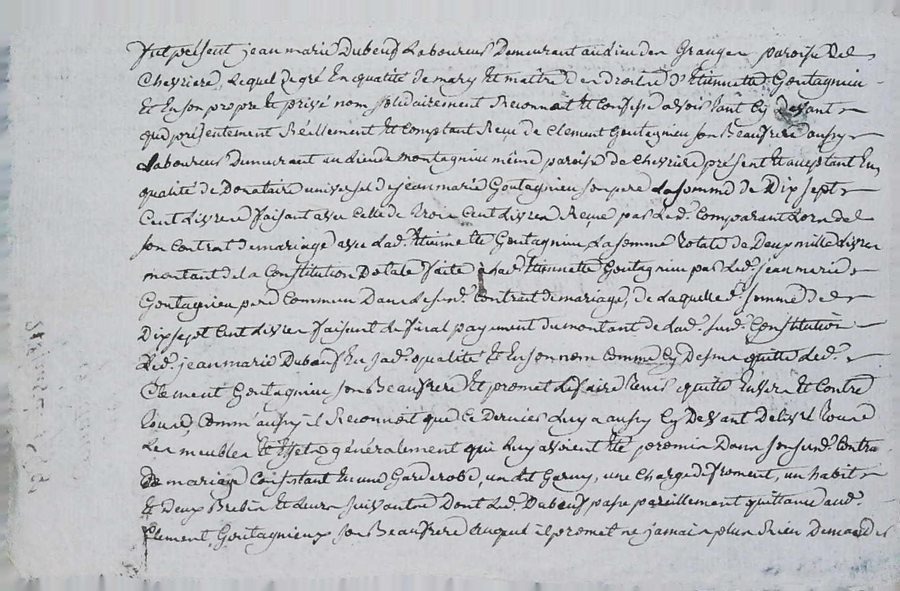 fut présent jean marie Dubeuf Laboureur Demeurant au lieu des Granges paroisse de
Chevriere, Lequel de gré En qualité de mary Et maitre des droits d'Etiennette Goutagnieu
Et En son propre et privé nom solidairement Reconnait Et Confesse avoir tant Cy devant
que présentement Réellement Et Comptant Reçu de Clement Goutagnieu son Beaufrere aussy
Laboureur Demeurant au lieu de montagnieu même paroisse de Chevriere présent Et acceptant En
qualité de Donataire universel de jean marie Goutagnieu son pere La somme de Dix sept
Cent Livres faisant avec Celle de trois Cent Livres Reçue par Led. Comparant Lors de
son Contrat de mariage avec Lad. Etiennette Goutagnieu La somme totale de Deux mille Livres
montant de la Constitution Dotale faite à Lad. Etiennette Goutagnieu par Led. jean marie
Goutagnieu pere Commun Dans Le sud. Contrat de mariage, de Laquelle d. somme de
Dix sept Cent Livres faisant Le final payement du montant de Lad. sud. Constitution
Led. jean marie Dubeuf En sad. qualité Et En son nom Comme Cy Dessus quitte Led.
Clement Goutagnieu son Beaufrere Et promet Le faire tenir quitte Envers Et Contre
tous, Comm' aussy il Reconnoit que Ce Dernier Luy a aussy Cy Devant Delivré tous
Les meubles Et Effets généralement qui Luy avoient Eté promis Dans son sud. Contrat
de mariage Consistant En une Garderobe, un Lit Garny, une Charge de froment, un habit
Et Deux Brebis Et Leurs suivants Dont Led. Dubeuf passe pareillement quittance aud.
Clement Goutagnieux son Beaufrere auquel il promet ne jamais plus Rien Demander